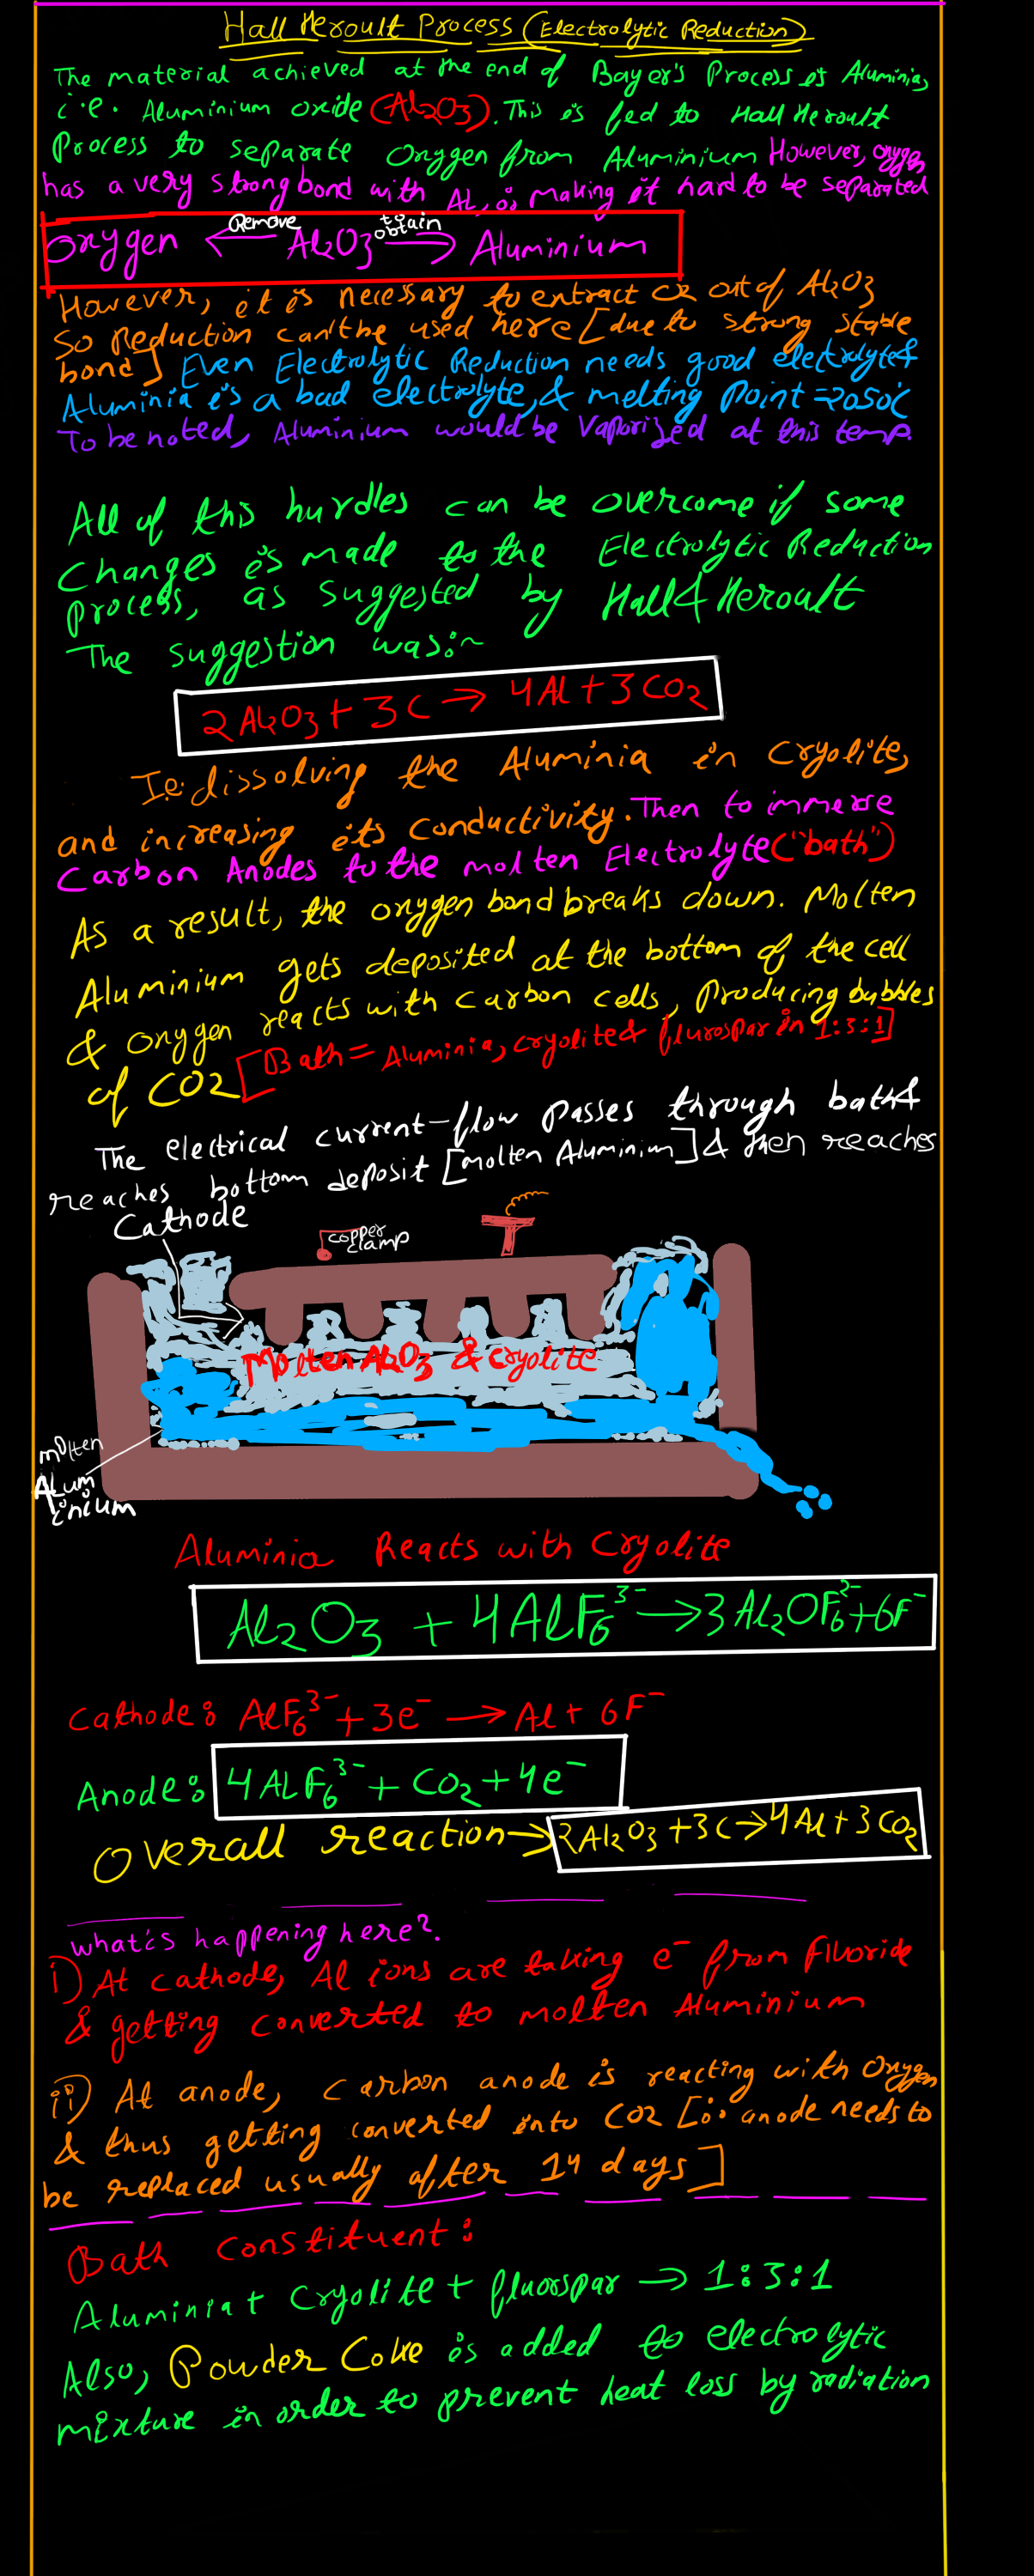 Hall Heroult Process (Electrolytic Reduction)
The material achieved at the end of Bayer's Process is Aluminia,
i.e. Aluminium oxide (Al2O3). This is fed to Hall Heroult
Process to separate Oxygen from Aluminium However, oxygen
has a very strong bond with Al, ∴ making it hard to be separated
Oxygen ← Remove Al2O3 to obtain → Aluminium
However, it is necessary to extract O2 out of Al2O3
So Reduction can't be used here [due to strong stable
bond] Even Electrolytic Reduction needs good electrolyte &
Aluminia is a bad electrolyte, & melting point = 2050°C
To be noted, Aluminium would be Vaporized at this temp.
All of this hurdles can be overcome if some
Changes is made to the Electrolytic Reduction
process, as suggested by Hall & Heroult
The suggestion was:~
2Al2O3 + 3C → 4Al + 3CO2
I.e. dissolving the Aluminia in Cryolite,
and increasing its Conductivity. Then to immerse
Carbon Anodes to the molten Electrolyte ("bath")
As a result, the oxygen bond breaks down. Molten
Aluminium gets deposited at the bottom of the cell
& oxygen reacts with carbon cells, producing bubbles
of CO2 [Bath = Aluminia, cryolite & flurospar in 1:3:1]
The electrical current-flow passes through bath &
reaches bottom deposit [molten Aluminium] & then reaches
Cathode
copper
clamp
Molten Al2O3 & Cryolite
molten
Alum
inium
Aluminia Reacts with Cryolite
Al2O3 + 4AlF6^3- → 3Al2OF6^2- + 6F^-
Cathode: AlF6^3- + 3e^- → Al + 6F^-
Anode: 4AlF6^3- + CO2 + 4e^-
Overall reaction → 2Al2O3 + 3C → 4Al + 3CO2
what's happening here?
i) At cathode, Al ions are taking e^- from Fluoride
& getting converted to molten Aluminium
ii) At anode, carbon anode is reacting with Oxygen
& thus getting converted into CO2 [∴ anode needs to
be replaced usually after 14 days]
Bath Constituent:
Aluminia + Cryolite + fluorspar → 1:3:1
Also, Powder Coke is added to electrolytic
mixture in order to prevent heat loss by radiation